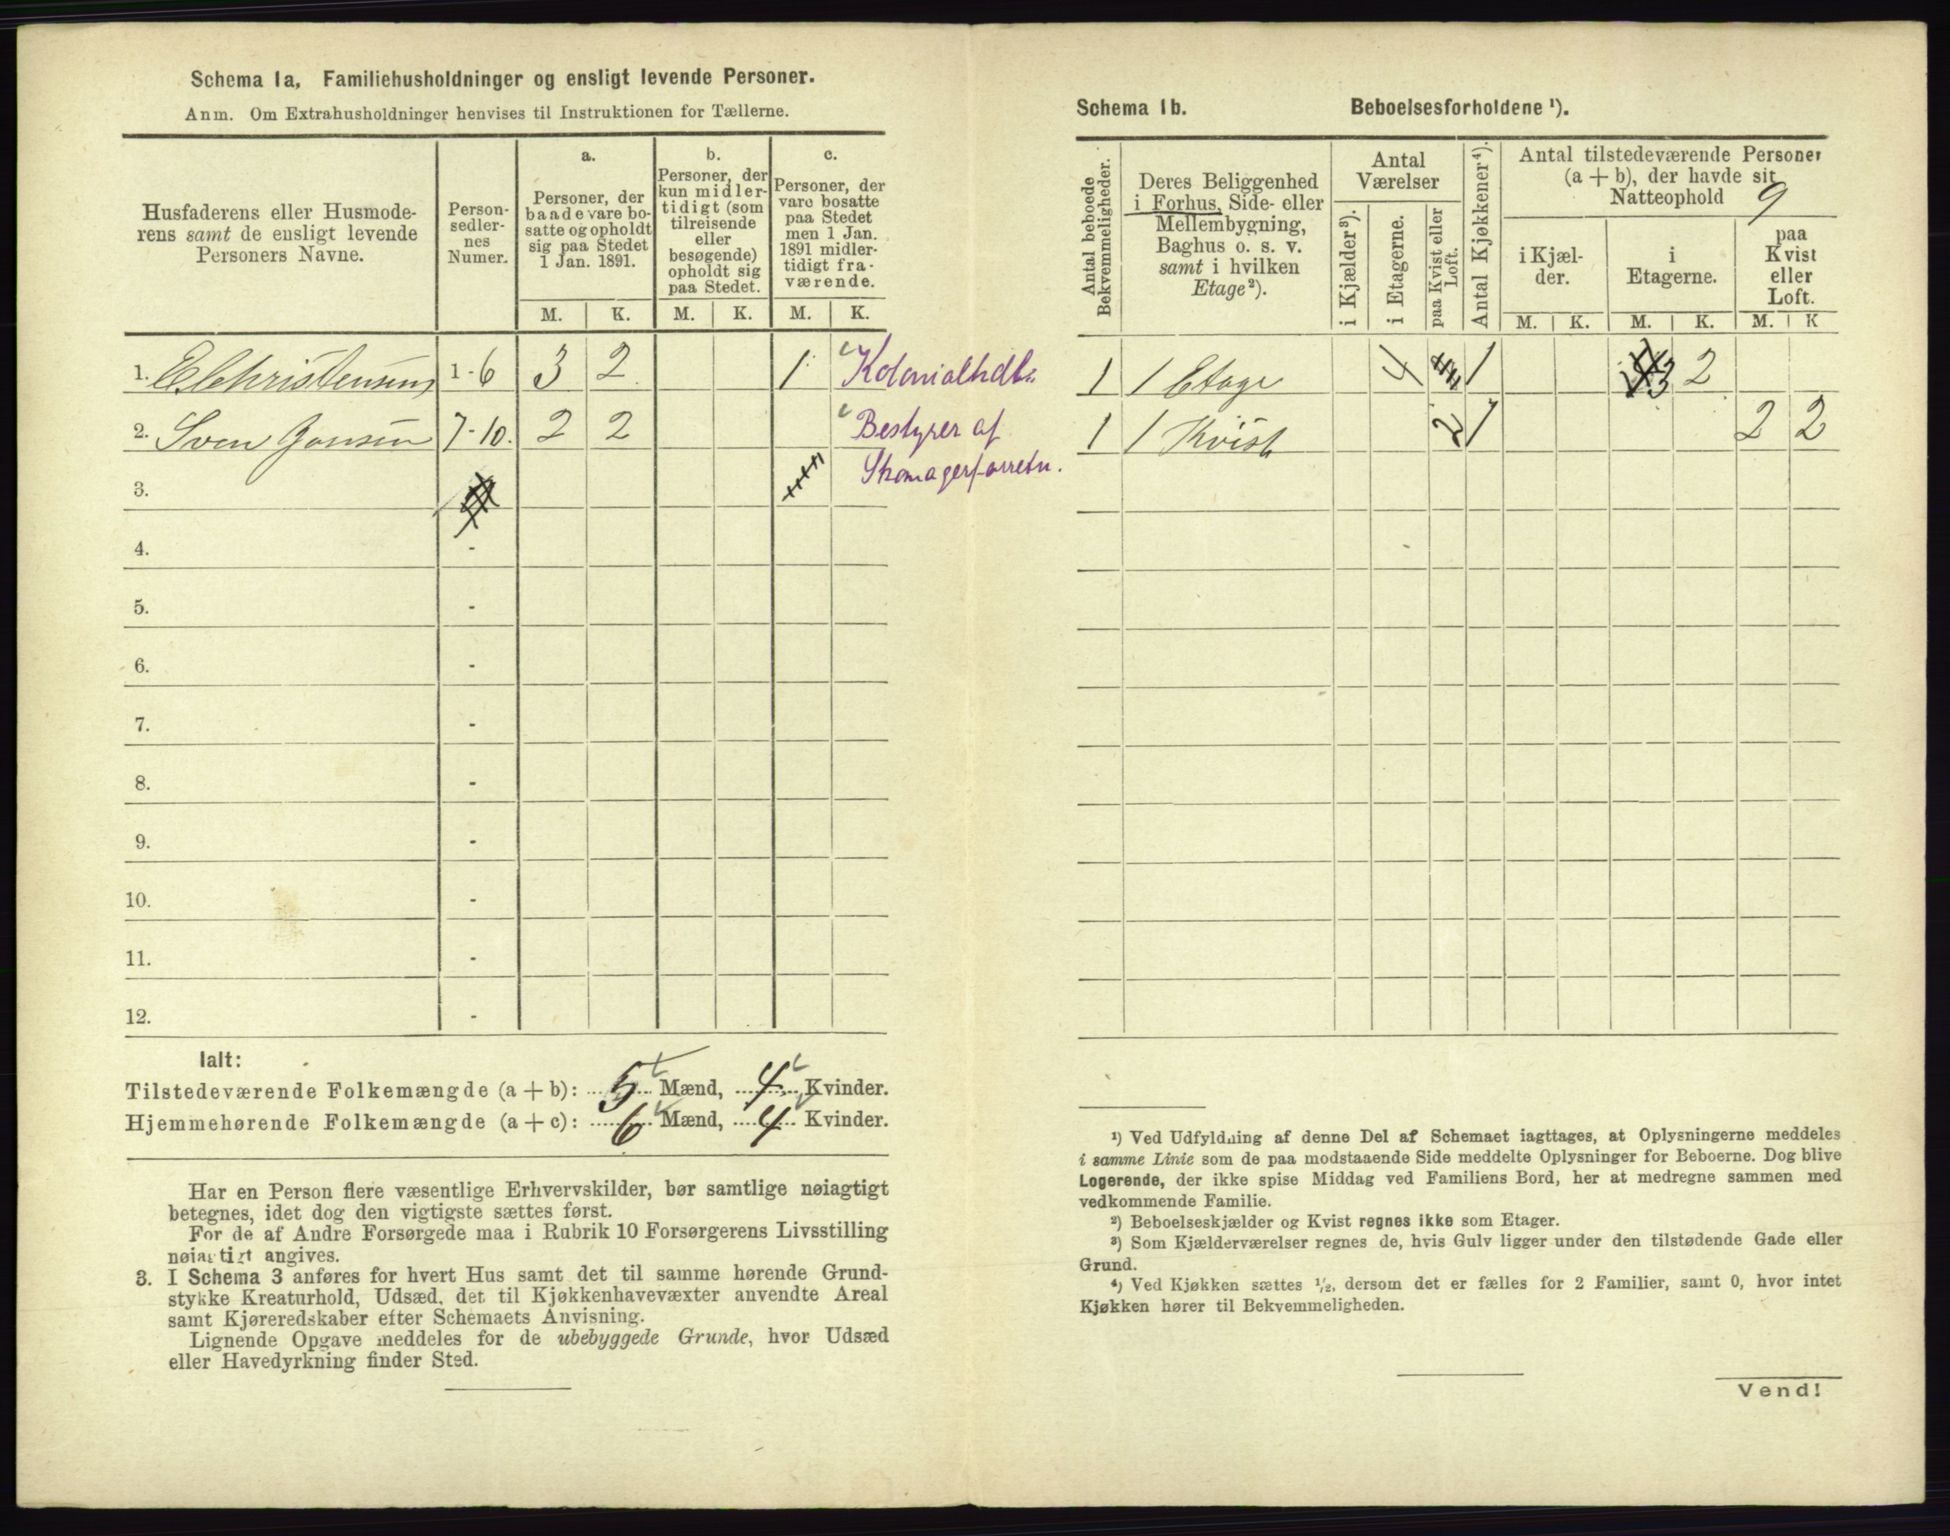 Schema 1a, Familiehusholdninger og ensligt levende Personer.
Anm. Om Extrahusholdninger henvises til Instruktionen for Tællerne.
Husfaderens eller Husmode-
rens samt de ensligt levende
Personers Navne.
Person-
sedler-
nes
Numer.
a.
Personer, der
baade vare bo-
satte og opholdt
sig paa Stedet
1 Jan. 1891.
b.
Personer, der
kun midler-
tidigt (som
tilreisende
eller
besøgende)
opholdt sig
paa Stedet.
c.
Personer, der
vare bosatte
paa Stedet
men 1 Jan.
1891 midler-
tidigt fra-
værende.
M. K. M. K. M. K.
1. E Christensens 1-6 3 2 1 Kolonialhdl.
2. Sven Jonsen 7-10. 2 2 Bestyrer af
Skomagerforretn.
3.
4. -
5. -
6. -
7. -
8. -
9. -
10. -
11. -
12. -
Ialt:
Tilstedeværende Folkemængde (a + b): 5 Mænd, 4 Kvinder.
Hjemmehørende Folkemængde (a + c): 6 Mænd, 4 Kvinder.
Har en Person flere væsentlige Erhvervskilder, bør samtlige nøiagtigt
betegnes, idet dog den vigtigste sættes først.
For de af Andre Forsørgede maa i Rubrik 10 Forsørgerens Livsstilling
nøiagtigt angives.
3. I Schema 3 anføres for hvert Hus samt det til samme hørende Grund-
stykke Kreaturhold, Udsæd, det til Kjøkkenhavevæxter anvendte Areal
samt Kjøreredskaber efter Schemaets Anvisning.
Lignende Opgave meddeles for de ubebyggede Grunde, hvor Udsæd
eller Havedyrkning finder Sted.
Schema 1b. Beboelsesforholdene ¹).
Antal beboede
Bekvemmeligheder.
Deres Beliggenhed
i Forhus, Side- eller
Mellembygning,
Baghus o. s. v.
samt i hvilken
Etage²).
Antal
Værelser
i Kjælder³).
i Etagerne.
paa Kvist eller
Loft.
Antal Kjøkkener⁴).
Antal tilstedeværende Personer
(a + b), der havde sit
Natteophold 9
i Kjæl-
der.
i
Etagerne.
paa
Kvist
eller
Loft.
M. K. M. K. M. K
1 1 Etage 4 1 3 2
1 1 Kvist 2 1 2 2
¹) Ved Udfyldning af denne Del af Schemaet iagttages, at Oplysningerne meddeles
i samme Linie som de paa modstaaende Side meddelte Oplysninger for Beboerne. Dog blive
Logerende, der ikke spise Middag ved Familiens Bord, her at medregne sammen med
vedkommende Familie.
²) Beboelseskjælder og Kvist regnes ikke som Etager.
³) Som Kjælderværelser regnes de, hvis Gulv ligger under den tilstødende Gade eller
Grund.
⁴) Ved Kjøkken sættes ½, dersom det er fælles for 2 Familier, samt 0, hvor intet
Kjøkken hører til Bekvemmeligheden.
Vend!